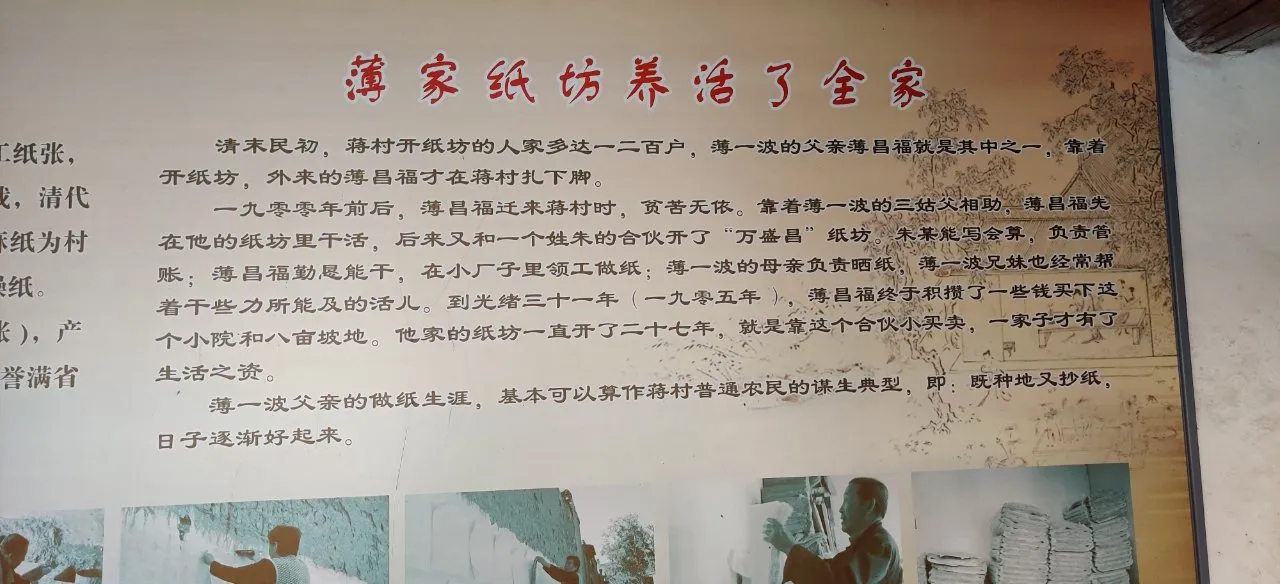 薄家纸坊养活了全家
清末民初，蒋村开纸坊的人家多达一二百户，薄一波的父亲薄昌福就是其中之一，靠着
开纸坊，外来的薄昌福才在蒋村扎下脚。
一九零零年前后，薄昌福迁来蒋村时，贫苦无依。靠着薄一波的三姑父相助，薄昌福先
在他的纸坊里干活，后来又和一个姓朱的合伙开了“万盛昌”纸坊。朱某能写会算，负责管
账；薄昌福勤恳能干，在小厂子里领工做纸；薄一波的母亲负责晒纸，薄一波兄妹也经常帮
着干些力所能及的活儿。到光绪三十一年（一九零五年），薄昌福终于积攒了一些钱买下这
个小院和八亩坡地。他家的纸坊一直开了二十七年，就是靠这个合伙小买卖，一家子才有了
生活之资。
薄一波父亲的做纸生涯，基本可以算作蒋村普通农民的谋生典型，即：既种地又抄纸，
日子逐渐好起来。
工纸张，
，清代
麻纸为村
纸。
张），产
誉满省